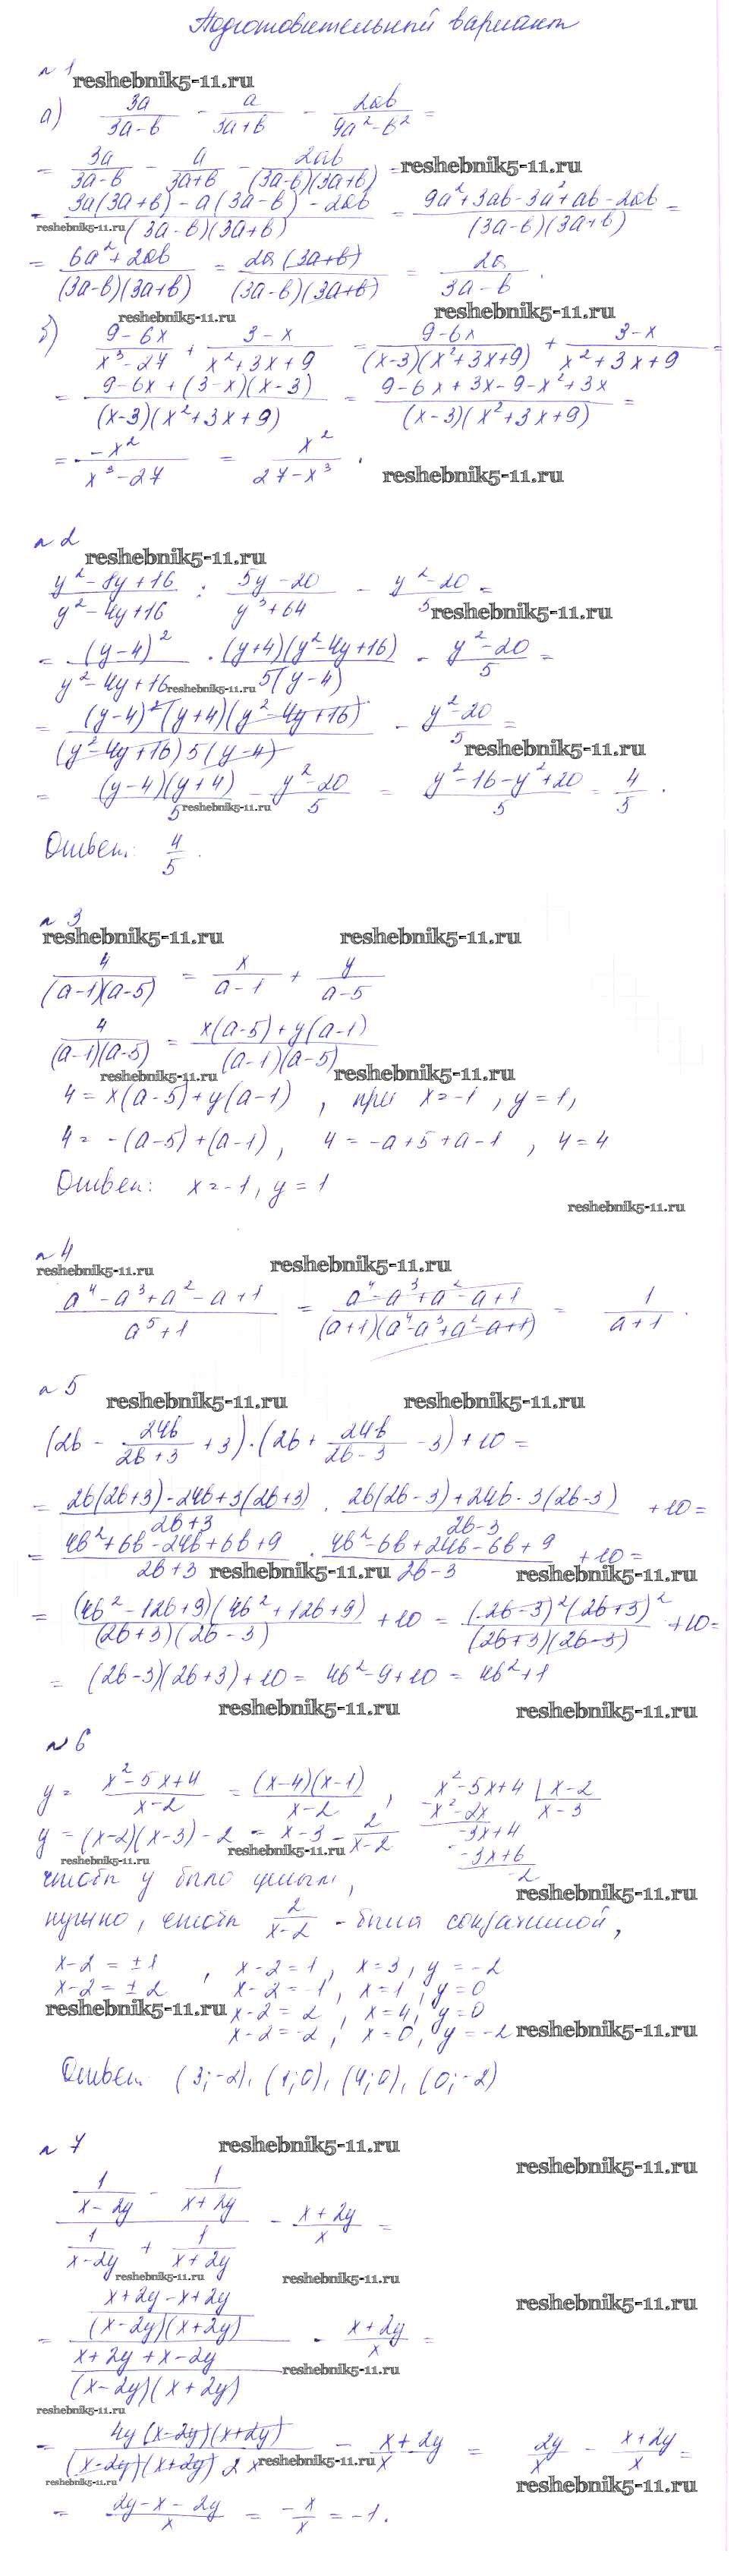 Подготовительный вариант
№ 1
reshebnik5-11.ru
а) 3a/(3a-b) - a/(3a+b) - 2ab/(9a²-b²) =
= 3a/(3a-b) - a/(3a+b) - 2ab/((3a-b)(3a+b)) = reshebnik5-11.ru
= (3a(3a+b) - a(3a-b) - 2ab)/((3a-b)(3a+b)) = (9a²+3ab-3a²+ab-2ab)/((3a-b)(3a+b)) =
reshebnik5-11.ru
= (6a²+2ab)/((3a-b)(3a+b)) = 2a(3a+b)/((3a-b)(3a+b)) = 2a/(3a-b).
reshebnik5-11.ru reshebnik5-11.ru
б) (9-6x)/(x³-27) + (3-x)/(x²+3x+9) = (9-6x)/((x-3)(x²+3x+9)) + (3-x)/(x²+3x+9) =
= (9-6x+(3-x)(x-3))/((x-3)(x²+3x+9)) = (9-6x+3x-9-x²+3x)/((x-3)(x²+3x+9)) =
= -x²/(x³-27) = x²/(27-x³).
reshebnik5-11.ru
№ 2
reshebnik5-11.ru
(y²-8y+16)/(y²-4y+16) : (5y-20)/(y³+64) - (y²-20)/5 =
reshebnik5-11.ru
= (y-4)²/(y²-4y+16) · (y+4)(y²-4y+16)/(5(y-4)) - (y²-20)/5 =
reshebnik5-11.ru
= (y-4)²(y+4)(y²-4y+16)/((y²-4y+16)5(y-4)) - (y²-20)/5 =
reshebnik5-11.ru
= (y-4)(y+4)/5 - (y²-20)/5 = (y²-16-y²+20)/5 = 4/5.
reshebnik5-11.ru
Ответ: 4/5.
№ 3
reshebnik5-11.ru reshebnik5-11.ru
4/((a-1)(a-5)) = x/(a-1) + y/(a-5)
4/((a-1)(a-5)) = (x(a-5)+y(a-1))/((a-1)(a-5))
reshebnik5-11.ru reshebnik5-11.ru
4 = x(a-5)+y(a-1), при x=-1, y=1,
4 = -(a-5)+(a-1), 4=-a+5+a-1, 4=4
Ответ: x=-1, y=1
reshebnik5-11.ru
№ 4
reshebnik5-11.ru reshebnik5-11.ru
(a⁴-a³+a²-a+1)/(a⁵+1) = (a⁴-a³+a²-a+1)/((a+1)(a⁴-a³+a²-a+1)) = 1/(a+1).
№ 5
reshebnik5-11.ru reshebnik5-11.ru
(2b - 24b/(2b+3) + 3)·(2b + 24b/(2b-3) - 3) + 10 =
= (2b(2b+3)-24b+3(2b+3))/(2b+3) · (2b(2b-3)+24b-3(2b-3))/(2b-3) + 10 =
= (4b²+6b-24b+6b+9)/(2b+3) · (4b²-6b+24b-6b+9)/(2b-3) + 10 =
reshebnik5-11.ru reshebnik5-11.ru
= (4b²-12b+9)(4b²+12b+9)/((2b+3)(2b-3)) + 10 = (2b-3)²(2b+3)²/((2b+3)(2b-3)) + 10 =
= (2b-3)(2b+3)+10 = 4b²-9+10 = 4b²+1
reshebnik5-11.ru reshebnik5-11.ru
№ 6
y = (x²-5x+4)/(x-2) = (x-4)(x-1)/(x-2), x²-5x+4 | x-2
x²-2x x-3
-3x+4
y = (x-2)(x-3)-2 = x-3 - 2/(x-2)
reshebnik5-11.ru reshebnik5-11.ru
-3x+6
-2
чтобы y было целым,
reshebnik5-11.ru
нужно, чтобы 2/(x-2) - была сократимой,
x-2 = ±1, x-2=1, x=3, y=-2
x-2 = ±2 x-2=-1, x=1, y=0
reshebnik5-11.ru x-2=2, x=4, y=0
x-2=-2, x=0, y=-2 reshebnik5-11.ru
Ответ: (3;-2), (1;0), (4;0), (0;-2)
№ 7
reshebnik5-11.ru
reshebnik5-11.ru
(1/(x-2y) - 1/(x+2y))/(1/(x-2y) + 1/(x+2y)) - (x+2y)/x =
reshebnik5-11.ru reshebnik5-11.ru
reshebnik5-11.ru
= ((x+2y-x+2y)/((x-2y)(x+2y)))/((x+2y+x-2y)/((x-2y)(x+2y))) - (x+2y)/x =
reshebnik5-11.ru
reshebnik5-11.ru
= 4y(x-2y)(x+2y)/((x-2y)(x+2y)2x) - (x+2y)/x = 2y/x - (x+2y)/x =
reshebnik5-11.ru
reshebnik5-11.ru reshebnik5-11.ru
= (2y-x-2y)/x = -x/x = -1.